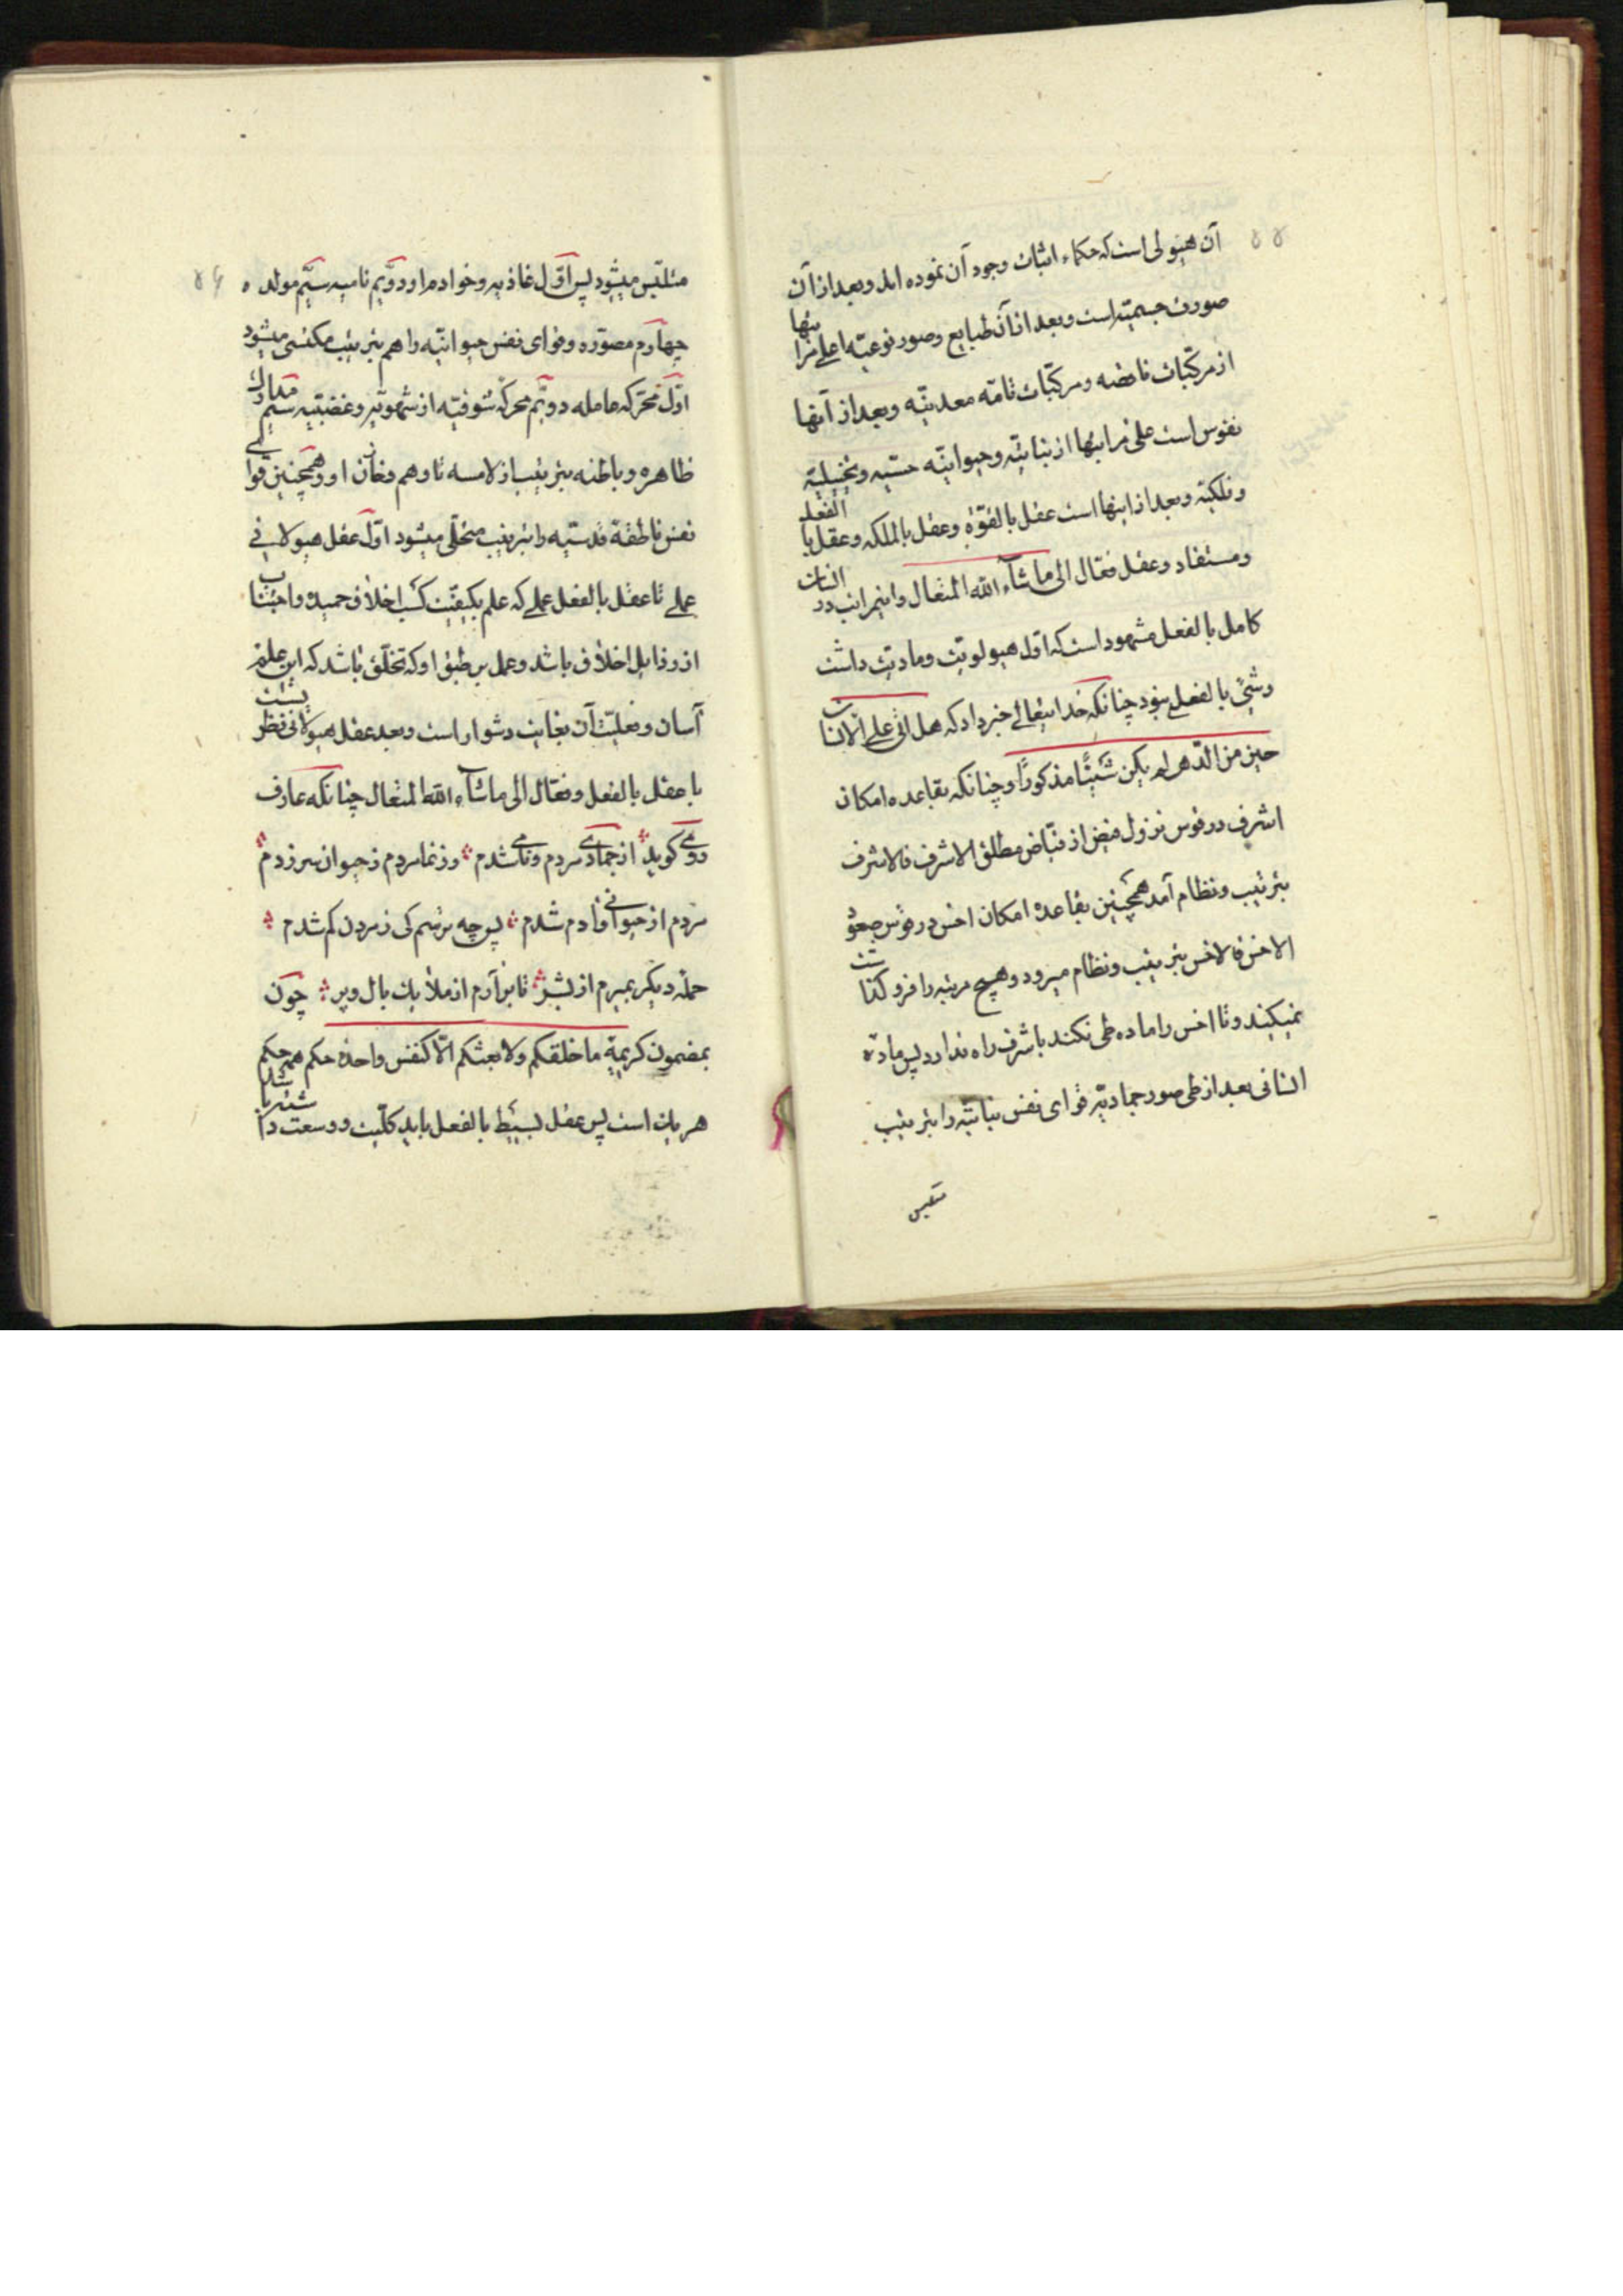 ۵۵
آن هیولی است که حکماء اثبات وجود آن نموده اند و بعد از آن
صورت جسمیّه است و بعد از آن طبایع و صور نوعیّه اعلی مراتبها
از مرکّبات ناقصه و مرکّبات تامّه معدنیّه و بعد از آنها
نفوس است علی مراتبها از نباتیّه و حیوانیّه حسّیه و تخیلیّه
و فلکیّه و بعد از اینها است عقل بالقوّة و عقل بالملکه و عقل بالفعل
و مستفاد و عقل فعّال الی ماشآء الله المتعال و این مراتب در انسان
کامل بالفعل مشهود است که اوّل هیولویّت و مادیّت داشت
و شیئ بالفعل نبود چنانکه خدایتعالی خبر داد که هل اتی علی الانسان
حین من الدّهر لم یکن شیئًا مذکورًا و چنانکه بقاعده امکان
اشرف در قوس نزول فیض از فیّاض مطلق الاشرف فالاشرف
بترتیب و نظام آمد همچنین بقاعدۀ امکان اخس در قوس صعود
الاخس فالاخس بترتیب و نظام میرود و هیچ مرتبه را فرو گذاشت
نمیکنند و تا اخس را ماده طی نکند باشرف راه ندارد پس مادّۀ
انسانی بعد از طی صور جمادیّه قوای نفس نباتیّه را بترتیب
متلبّس
۵۶
متلبّس میشود پس اوّل غاذیه و خوادم او دوّیم نامیه سیّم مولده
چهارم مصوّره و قوای نفس حیوانیّه را هم بترتیب مکتسی میشود
اوّل محرّکه عامله دویّم محرکه شوقیّه از شهویّه و غضبیّه سیّم مدارک
ظاهره و باطنه بترتیب از لامسه تا وهم و فعّان او و همچنین قوای
نفس ناطقۀ قدسیّه را بترتیب متحلّی میشود اوّل عقل هیولانی
عملی تا عقل بالفعل عملی که علم بکیفیّت کسب اخلاق حمیده و اجتناب
از رذایل اخلاق باشد و عمل بر طبق او که تخلّق باشد که این علم
آسان و فعلیّت آن بغایت دشوار است و بعد عقل هیولانی نظریست
یا عقل بالفعل و فعّال الی ماشآء الله المتعال چنانکه عارف
رومی گوید از جمادی مردم و نامی شدم وز نما مردم ز حیوان سر زدم
مردم از حیوانی و آدم شدم پس چه ترسم کی ز مردن کم شدم
حملۀ دیگر بمیرم از بشر تا برآرم از ملایک بال و پر چون
بمضمون کریمۀ ما خلقکم ولا بعثکم الّا کنفس واحدة حکم همه حکم
هر یک است پس عقل بسیط بالفعل باید کلّیت و وسعت داشته باشد